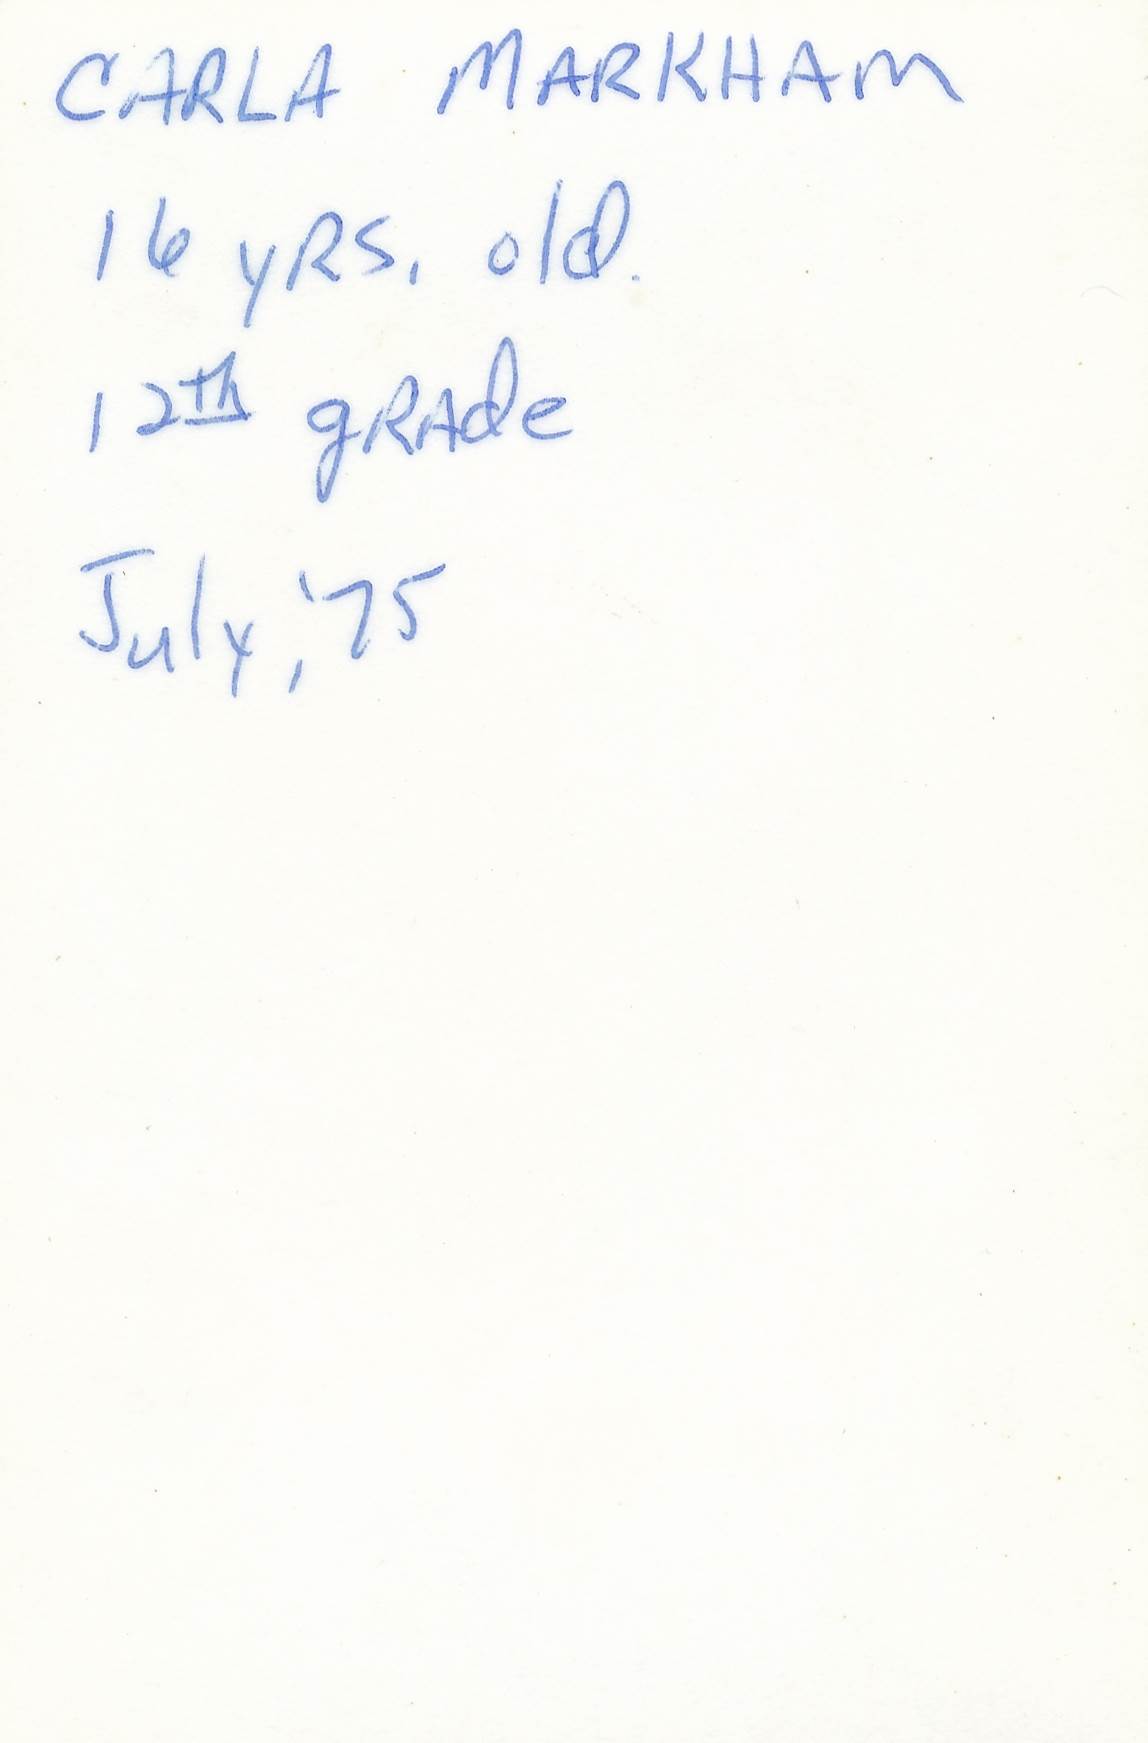 CARLA MARKHAM
16 yRs. old.
12th gRAde
July, '75